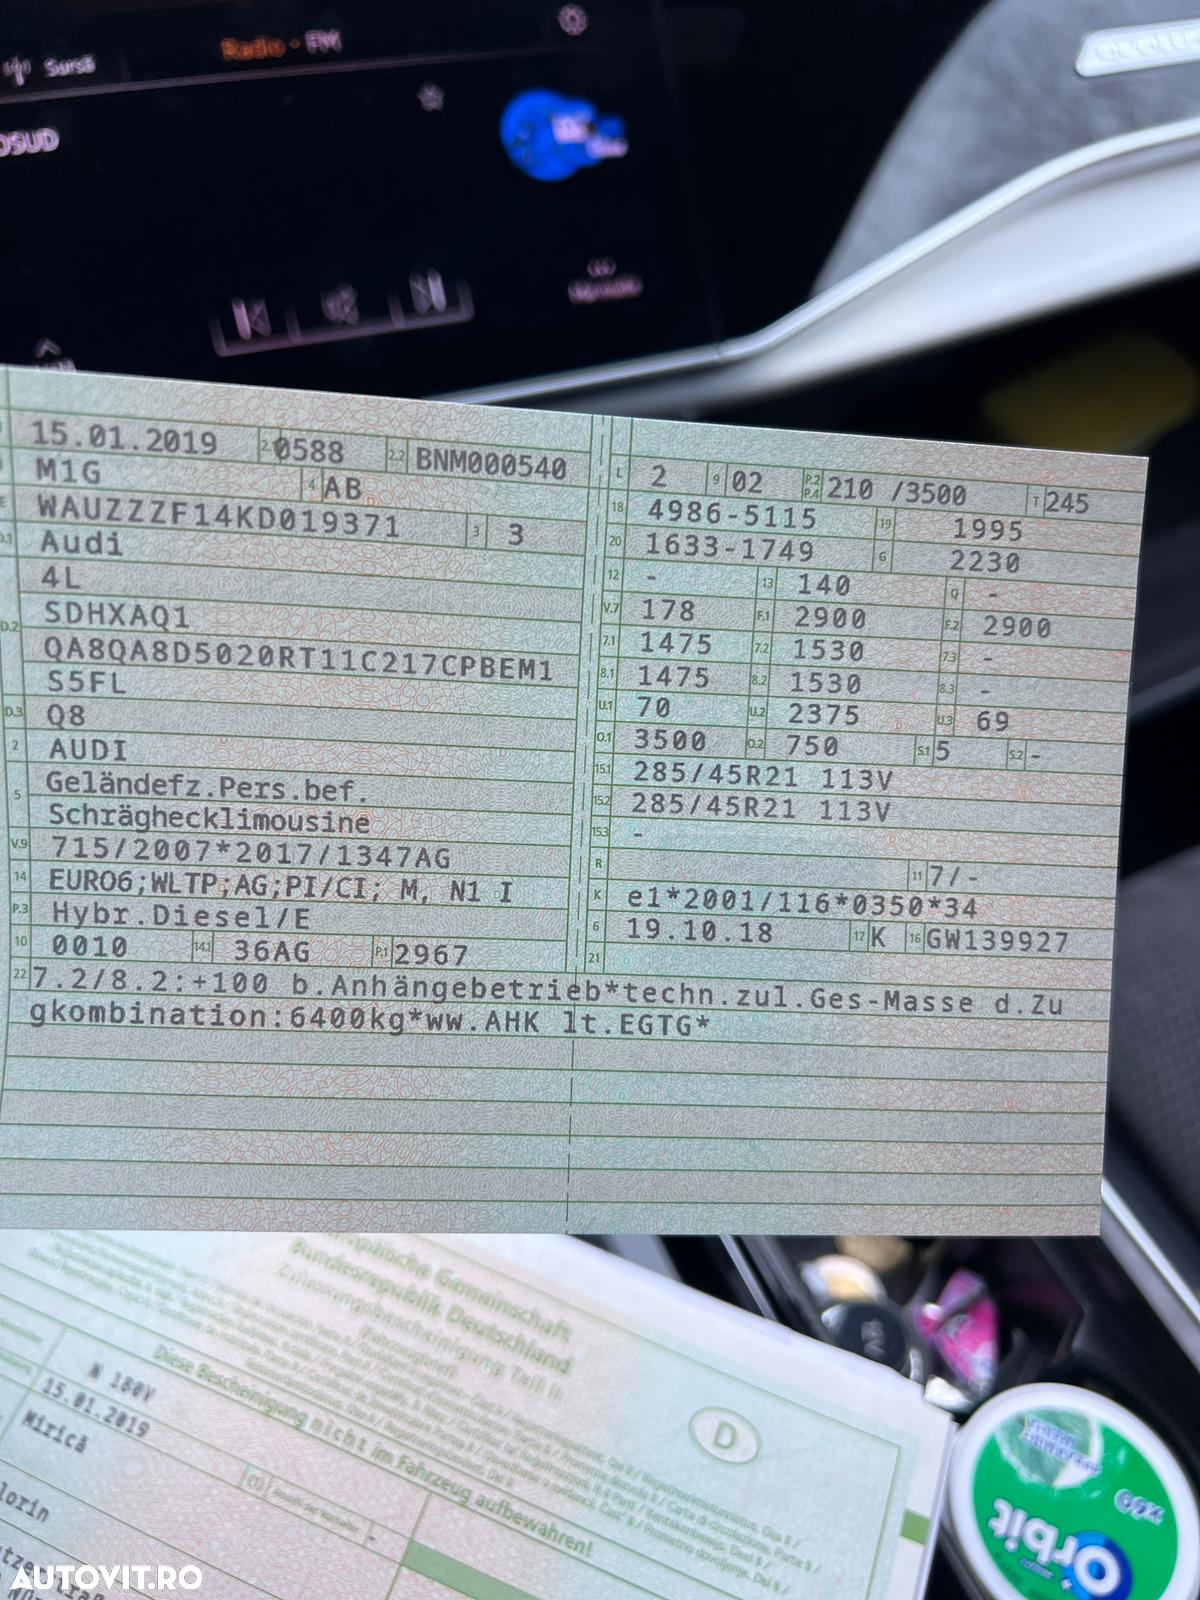 Sursă
Radio · FM
OSUD
15.01.2019 2.1 0588 2.2 BNM000540
M1G 4 AB
WAUZZZF14KD019371 3 3
Audi
4L
SDHXAQ1
D.2 QA8QA8D5020RT11C217CPBEM1
S5FL
D.3 Q8
2 AUDI
5 Geländefz.Pers.bef.
Schräghecklimousine
V.9 715/2007*2017/1347AG
14 EURO6;WLTP;AG;PI/CI; M, N1 I
P.3 Hybr.Diesel/E
10 0010 14.1 36AG P.1 2967
L 2 9 02 P.2 P.4 210 /3500 T 245
18 4986-5115 19 1995
20 1633-1749 G 2230
12 - 13 140 Q -
V.7 178 F.1 2900 F.2 2900
7.1 1475 7.2 1530 7.3 -
8.1 1475 8.2 1530 8.3 -
U.1 70 U.2 2375 U.3 69
O.1 3500 O.2 750 S.1 5 S.2 -
15.1 285/45R21 113V
15.2 285/45R21 113V
15.3 -
R 11 7/-
K e1*2001/116*0350*34
6 19.10.18 17 K 16 GW139927
21
22 7.2/8.2:+100 b.Anhängebetrieb*techn.zul.Ges-Masse d.Zu
gkombination:6400kg*ww.AHK lt.EGTG*
Europäische Gemeinschaft
Bundesrepublik Deutschland
Zulassungsbescheinigung Teil II
(Fahrzeugbrief)
Diese Bescheinigung nicht im Fahrzeug aufbewahren!
D
N 180V
15.01.2019
Mirică
lorin
Orbit
x60
AUTOVIT.RO